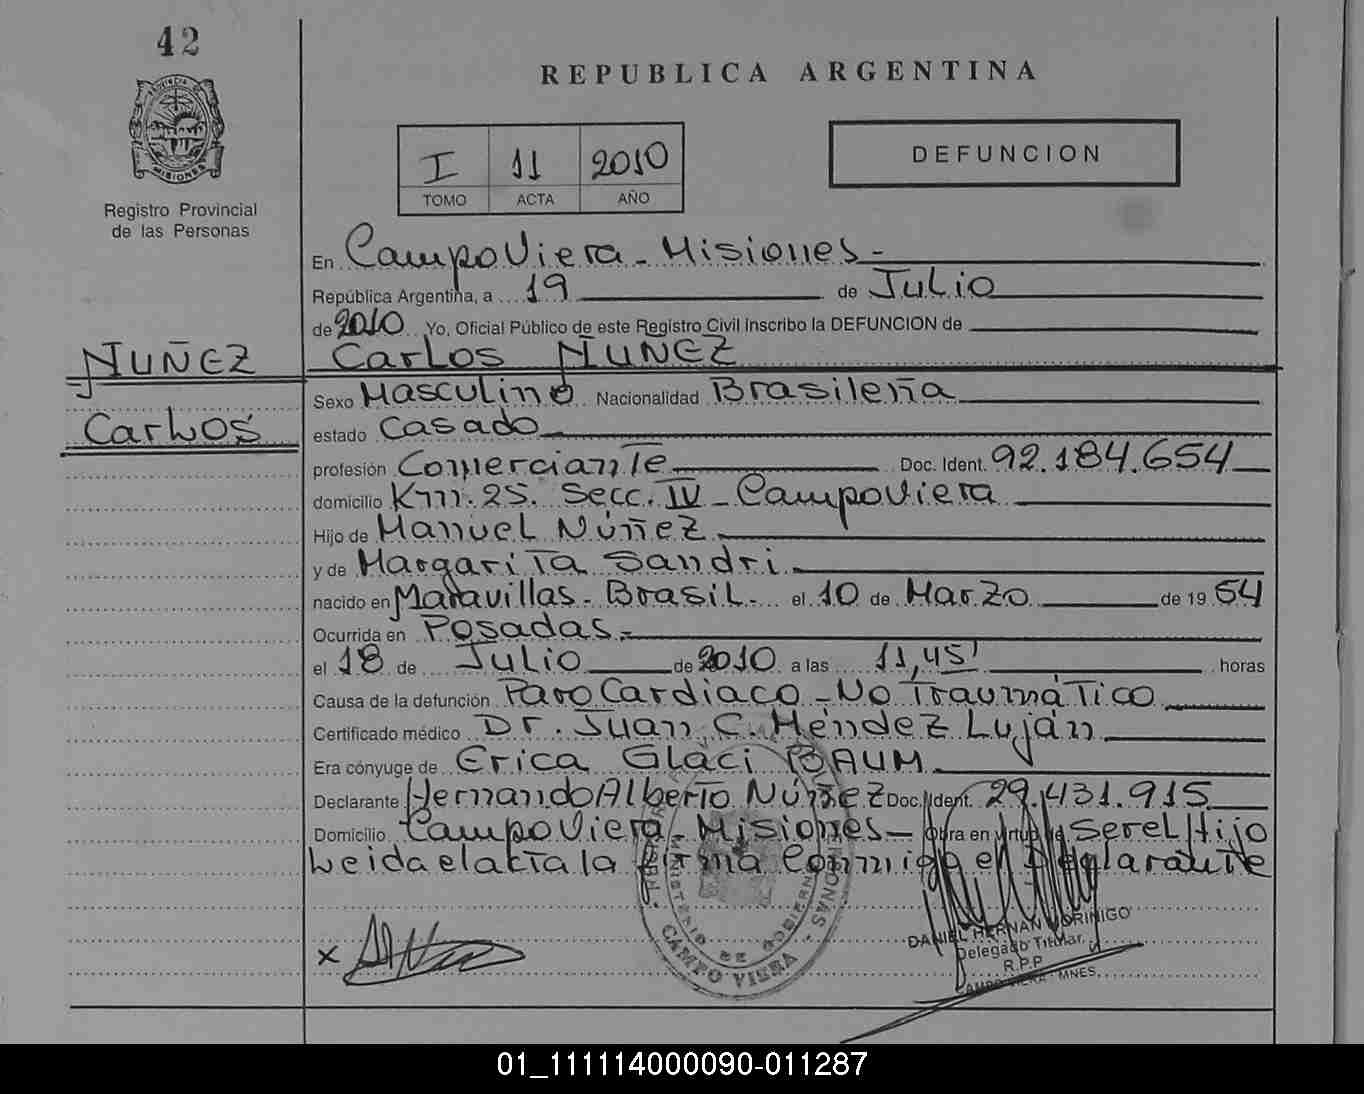 42
REPUBLICA ARGENTINA
PROVINCIA DE MISIONES
I 11 2010
TOMO ACTA AÑO
DEFUNCION
Registro Provincial
de las Personas
En CampoViera - Misiones -
República Argentina, a 19 de Julio
de 2010 Yo, Oficial Público de este Registro Civil inscribo la DEFUNCION de
NUÑEZ Carlos NUÑEZ
Sexo Masculino Nacionalidad Brasileña
Carlos
estado Casado
profesión Comerciante Doc. Ident. 92.184.654
domicilio Km. 25. Secc. IV - CampoViera
Hijo de Manuel Núñez
y de Margarita Sandri
nacido en Maravillas - Brasil - el 10 de Marzo de 19 54
Ocurrida en Posadas -
el 18 de Julio de 2010 a las 11,45' horas
Causa de la defunción Paro Cardiaco - No Traumático
Certificado médico Dr. Juan C. Méndez Luján
Era cónyuge de Erica Glaci BAUM
Declarante Hernando Alberto Núñez Doc. Ident. 29.431.915
Domicilio CampoViera - Misiones - Obra en virtud de Ser el Hijo
Leida el acta la firma Conmigo el Declarante
MINISTERIO DE GOBIERNO
CAMPO VIERA
x
DANIEL HERNAN MORINIGO
Delegado Titular
R.P.P
CAMPO VIERA - MNES.
01_111114000090-011287